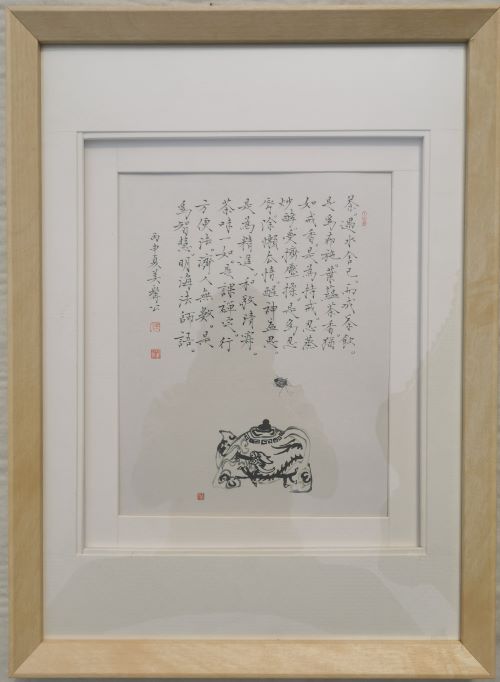 茶遇水舍己而成茶飲。
是為布施。葉蘊茶香猶
如戒香是為持戒忍蒸
炒酵受擠壓揉是為忍
辱。除懶去惰醒神益思。
是為精進。和敬清寂。
茶味一如。是謂禪定。行
方便法。濟人無數。是
為智慧。明海法師語。
丙申夏美